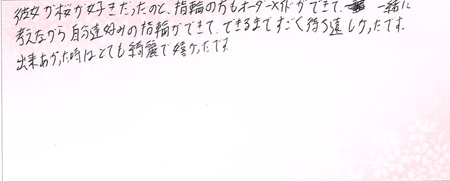 彼女が桜が好きだったのと、指輪の方もオーダーメイドができて、一緒に
考えながら自分達好みの指輪ができて、できるまですごく待ち遠しかったです。
出来あがった時はとても綺麗で嬉かったです。